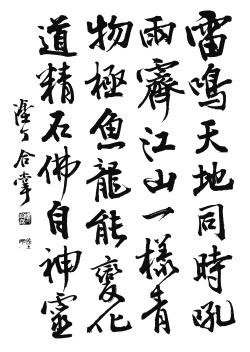 雷鳴天地同時吼
雨霽江山一樣青
物極魚龍能變化
道精石佛自神靈
合掌